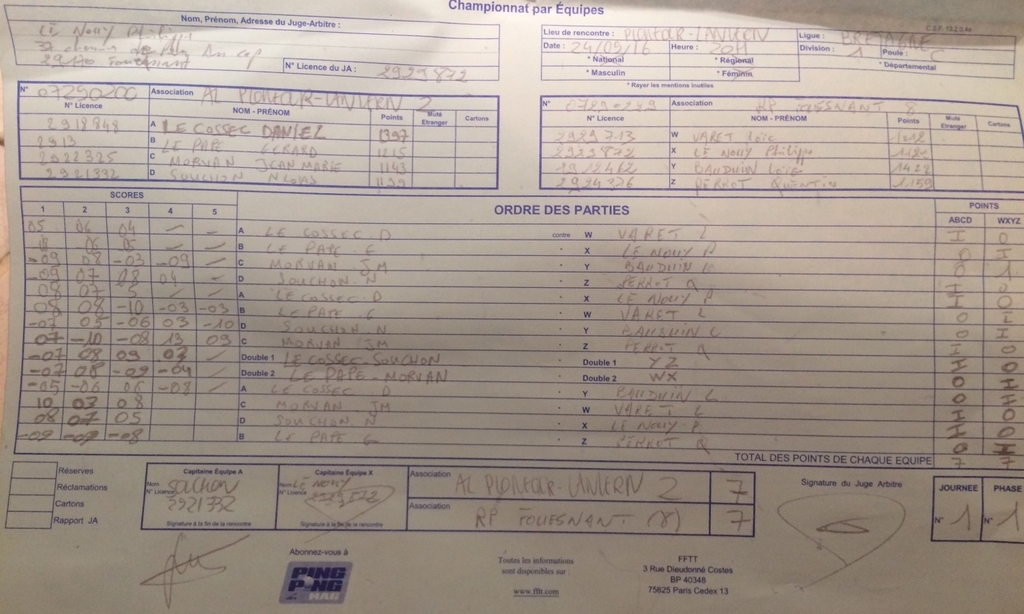 Championnat par Équipes
C.C.F. 13.23.M
Nom, Prénom, Adresse du Juge-Arbitre :
LE NOUY Philippe
32 chemin de
29170 Fouesnant
N° Licence du JA : 2923872
Lieu de rencontre : PLONEOUR-LANVERN
Ligue : BRETAGNE
Date : 24/09/16 Heure : 20H
Division : 1 Poule : C
* National * Régional * Départemental
* Masculin * Féminin
* Rayer les mentions inutiles
N° 07290200 Association AL PLONEOUR-LANVERN 2
N° Licence NOM - PRÉNOM Points Muté Etranger Cartons
2918948 A LE COSSEC DANIEL 1397
2913 B LE PAPE GERARD 1215
2922325 C MORVAN JEAN MARIE 1143
2921332 D SOUCHON NICOLAS 1139
N° 07290239 Association RP FOUESNANT 8
N° Licence NOM - PRÉNOM Points Muté Etranger Cartons
2929713 W VARET Loïc
2923872 X LE NOUY Philippe
2912462 Y BAUDUIN Loïc
2924326 Z PERROT QUENTIN 1159
SCORES
1 2 3 4 5
ORDRE DES PARTIES
POINTS
ABCD WXYZ
05 06 04 — — A LE COSSEC D contre W VARET L 1 0
B LE PAPE G X LE NOUY P
-09 08 -03 -09 — C MORVAN JM Y BAUDUIN L 0 1
-09 07 08 04 — D SOUCHON N Z PERROT Q 1 0
08 07 5 — — A LE COSSEC D X LE NOUY P 1 0
08 08 -10 -03 -03 B LE PAPE G W VARET L 0 1
-07 05 -06 03 -10 D SOUCHON N Y BAUDUIN L 0 1
07 -10 -08 13 09 C MORVAN JM Z PERROT Q 1 0
-07 08 09 07 — Double 1 LE COSSEC-SOUCHON Double 1 YZ 1 0
-07 08 -09 -04 — Double 2 LE PAPE-MORVAN Double 2 WX 0 1
-05 -06 06 -08 — A LE COSSEC D Y BAUDUIN L 0 1
10 07 08 C MORVAN JM W VARET L 1 0
08 07 05 D SOUCHON N X LE NOUY P. 1 0
-09 -09 -08 B LE PAPE G Z PERROT Q 0 1
TOTAL DES POINTS DE CHAQUE EQUIPE 7 7
Réserves
Réclamations
Cartons
Rapport JA
Capitaine Équipe A
Nom SOUCHON
N° Licence 2921332
Signature à la fin de la rencontre
Capitaine Équipe X
Nom LE NOUY
N° Licence 2923872
Signature à la fin de la rencontre
Association AL PLONEOUR-LANVERN 2 7
Association RP FOUESNANT (8) 7
Signature du Juge Arbitre
JOURNEE PHASE
N° 1 N° 1
Abonnez-vous à
PING PONG MAG
Toutes les informations
sont disponibles sur :
www.fftt.com
FFTT
3 Rue Dieudonné Costes
BP 40348
75625 Paris Cedex 13